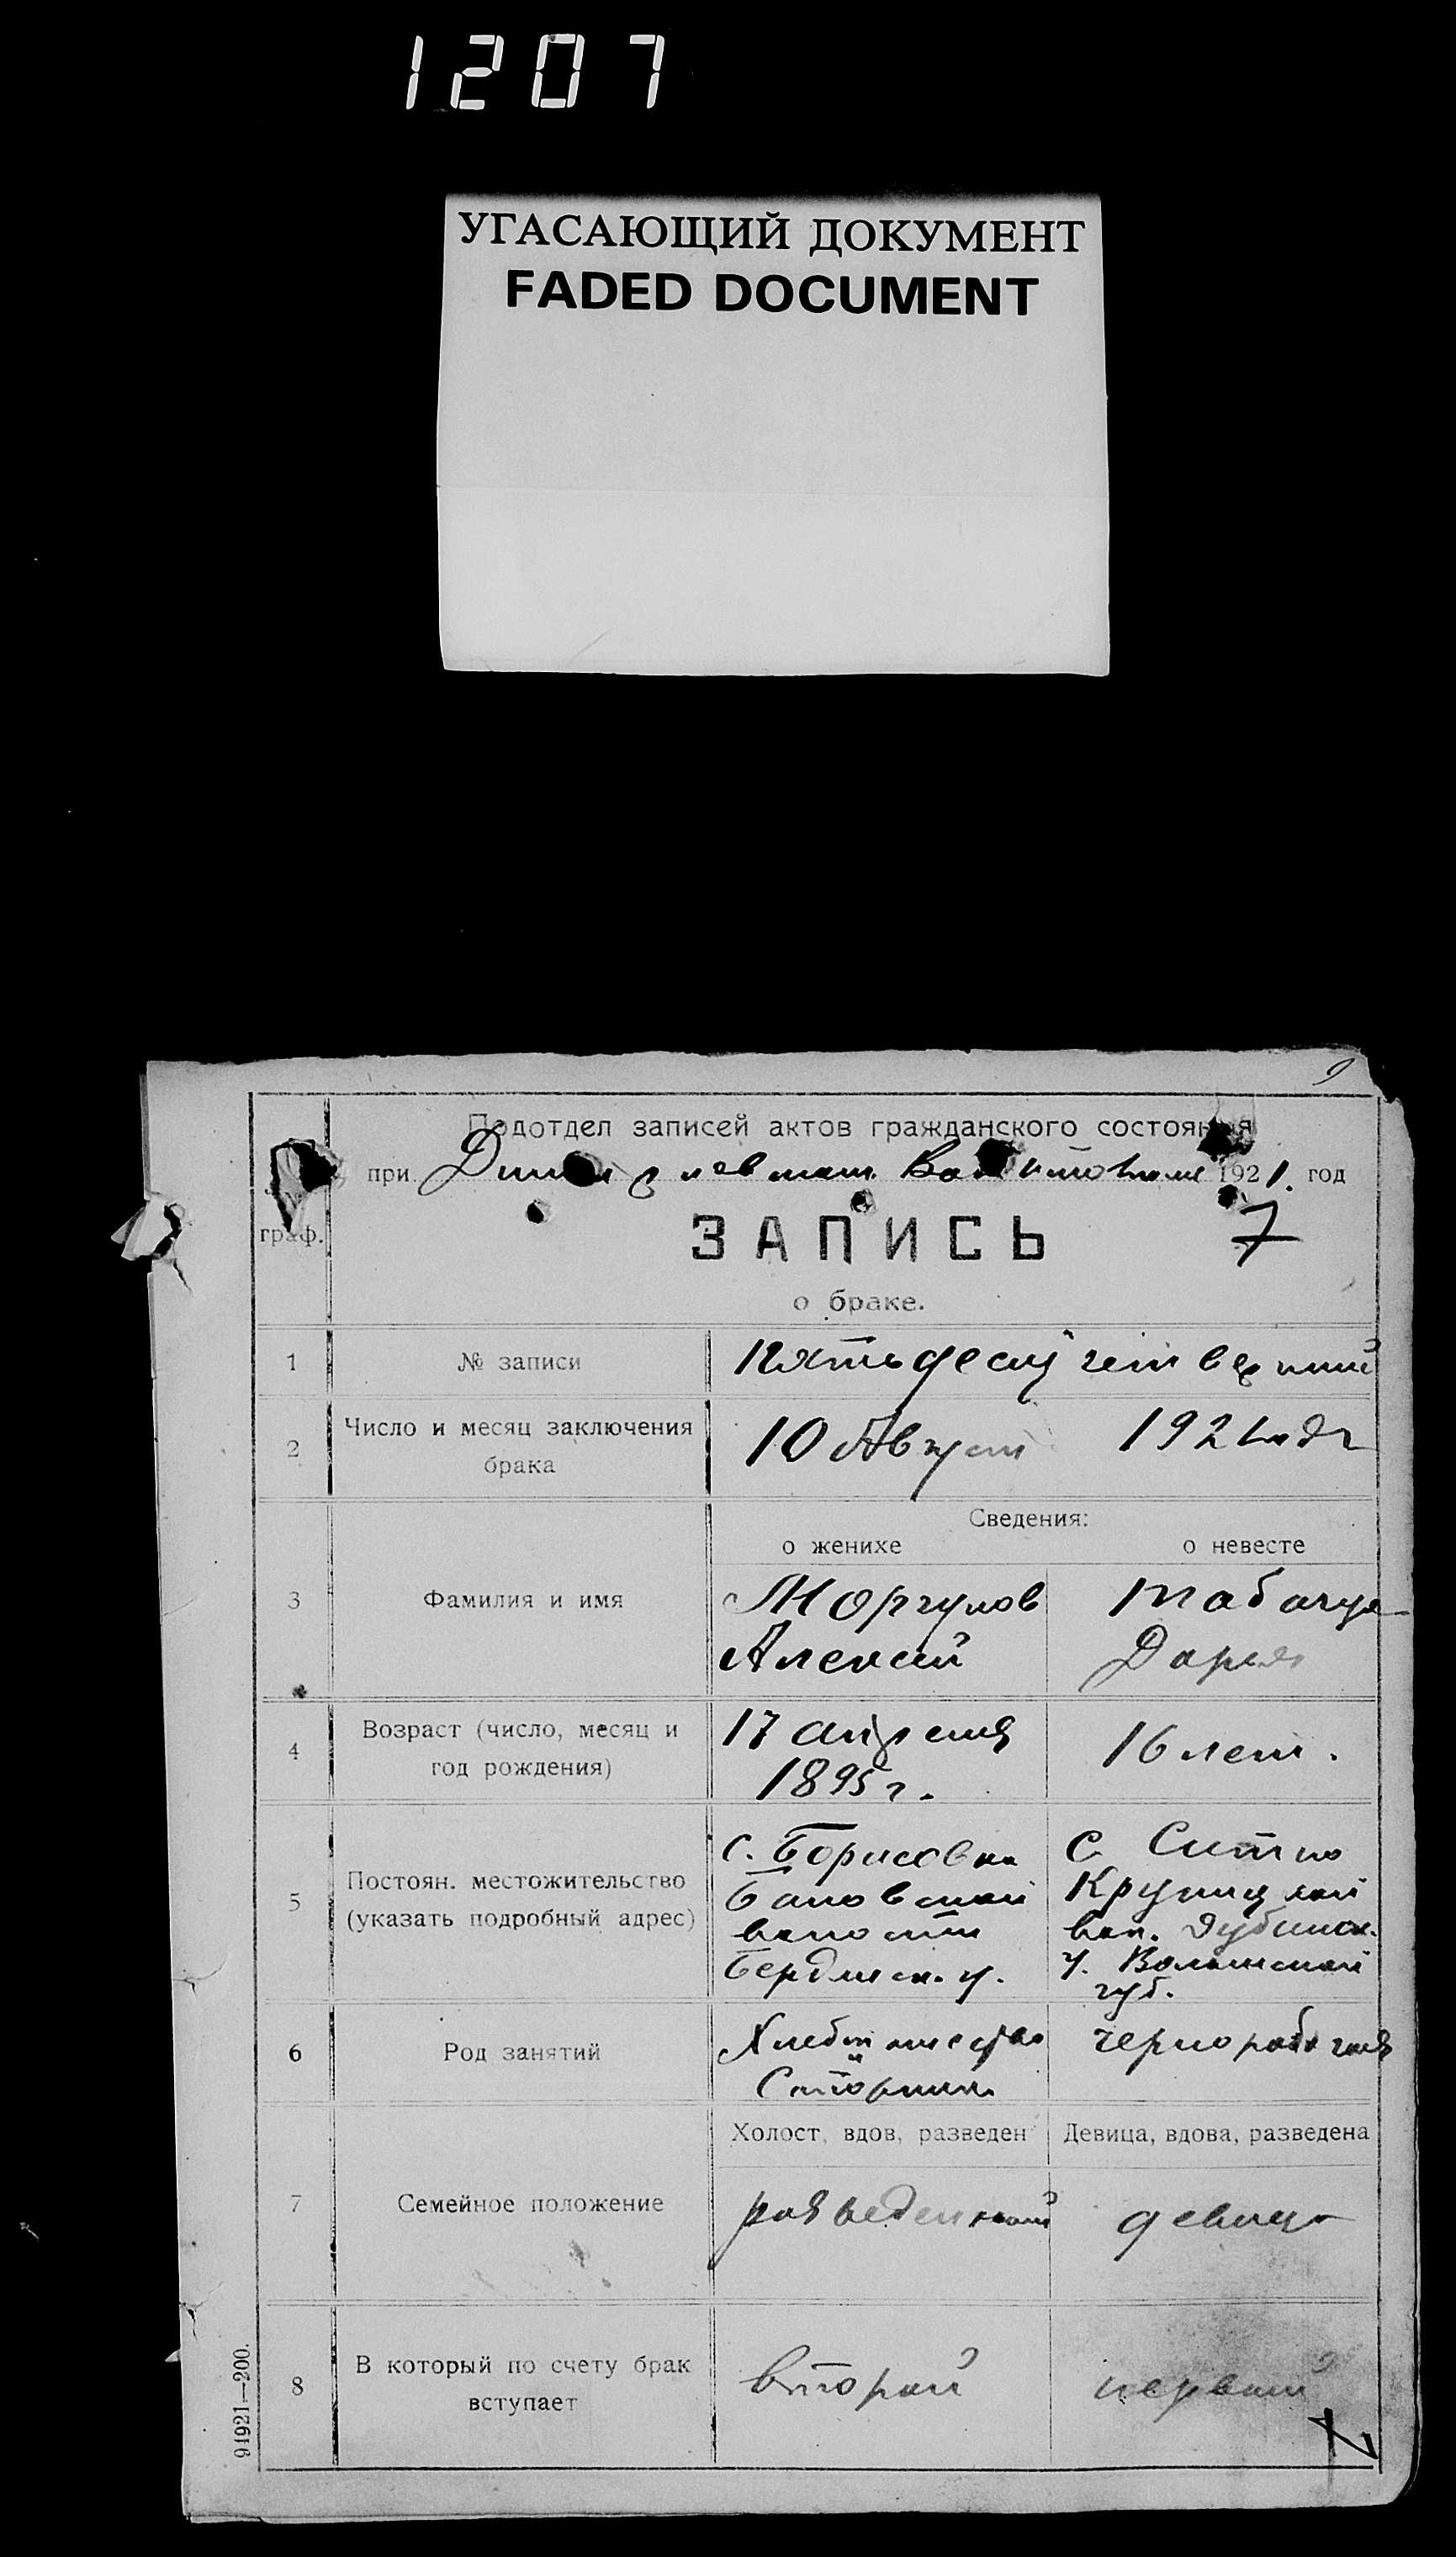 1207
УГАСАЮЩИЙ ДОКУМЕНТ
FADED DOCUMENT
Подотдел записей актов гражданского состояния
при 1921. год
граф.
ЗАПИСЬ
7
о браке.
1 № записи Пятьдесят четвертый
2 Число и месяц заключения брака 10 Август 1921 года
Сведения:
о женихе о невесте
3 Фамилия и имя
Моргунов
Алексей
Дарья
4 Возраст (число, месяц и год рождения)
17 апреля
1895 г.
16 лет.
5 Постоян. местожительство (указать подробный адрес)
с. Борисовка
волости
Бердянск. у.
с. Ситно
Крупецкой
вол. Дубинск.
у. Волынской
губ.
6 Род занятий
чернорабочая
Холост, вдов, разведен Девица, вдова, разведена
7 Семейное положение разведенный девица
8 В который по счету брак вступает второй первый
91921—200.